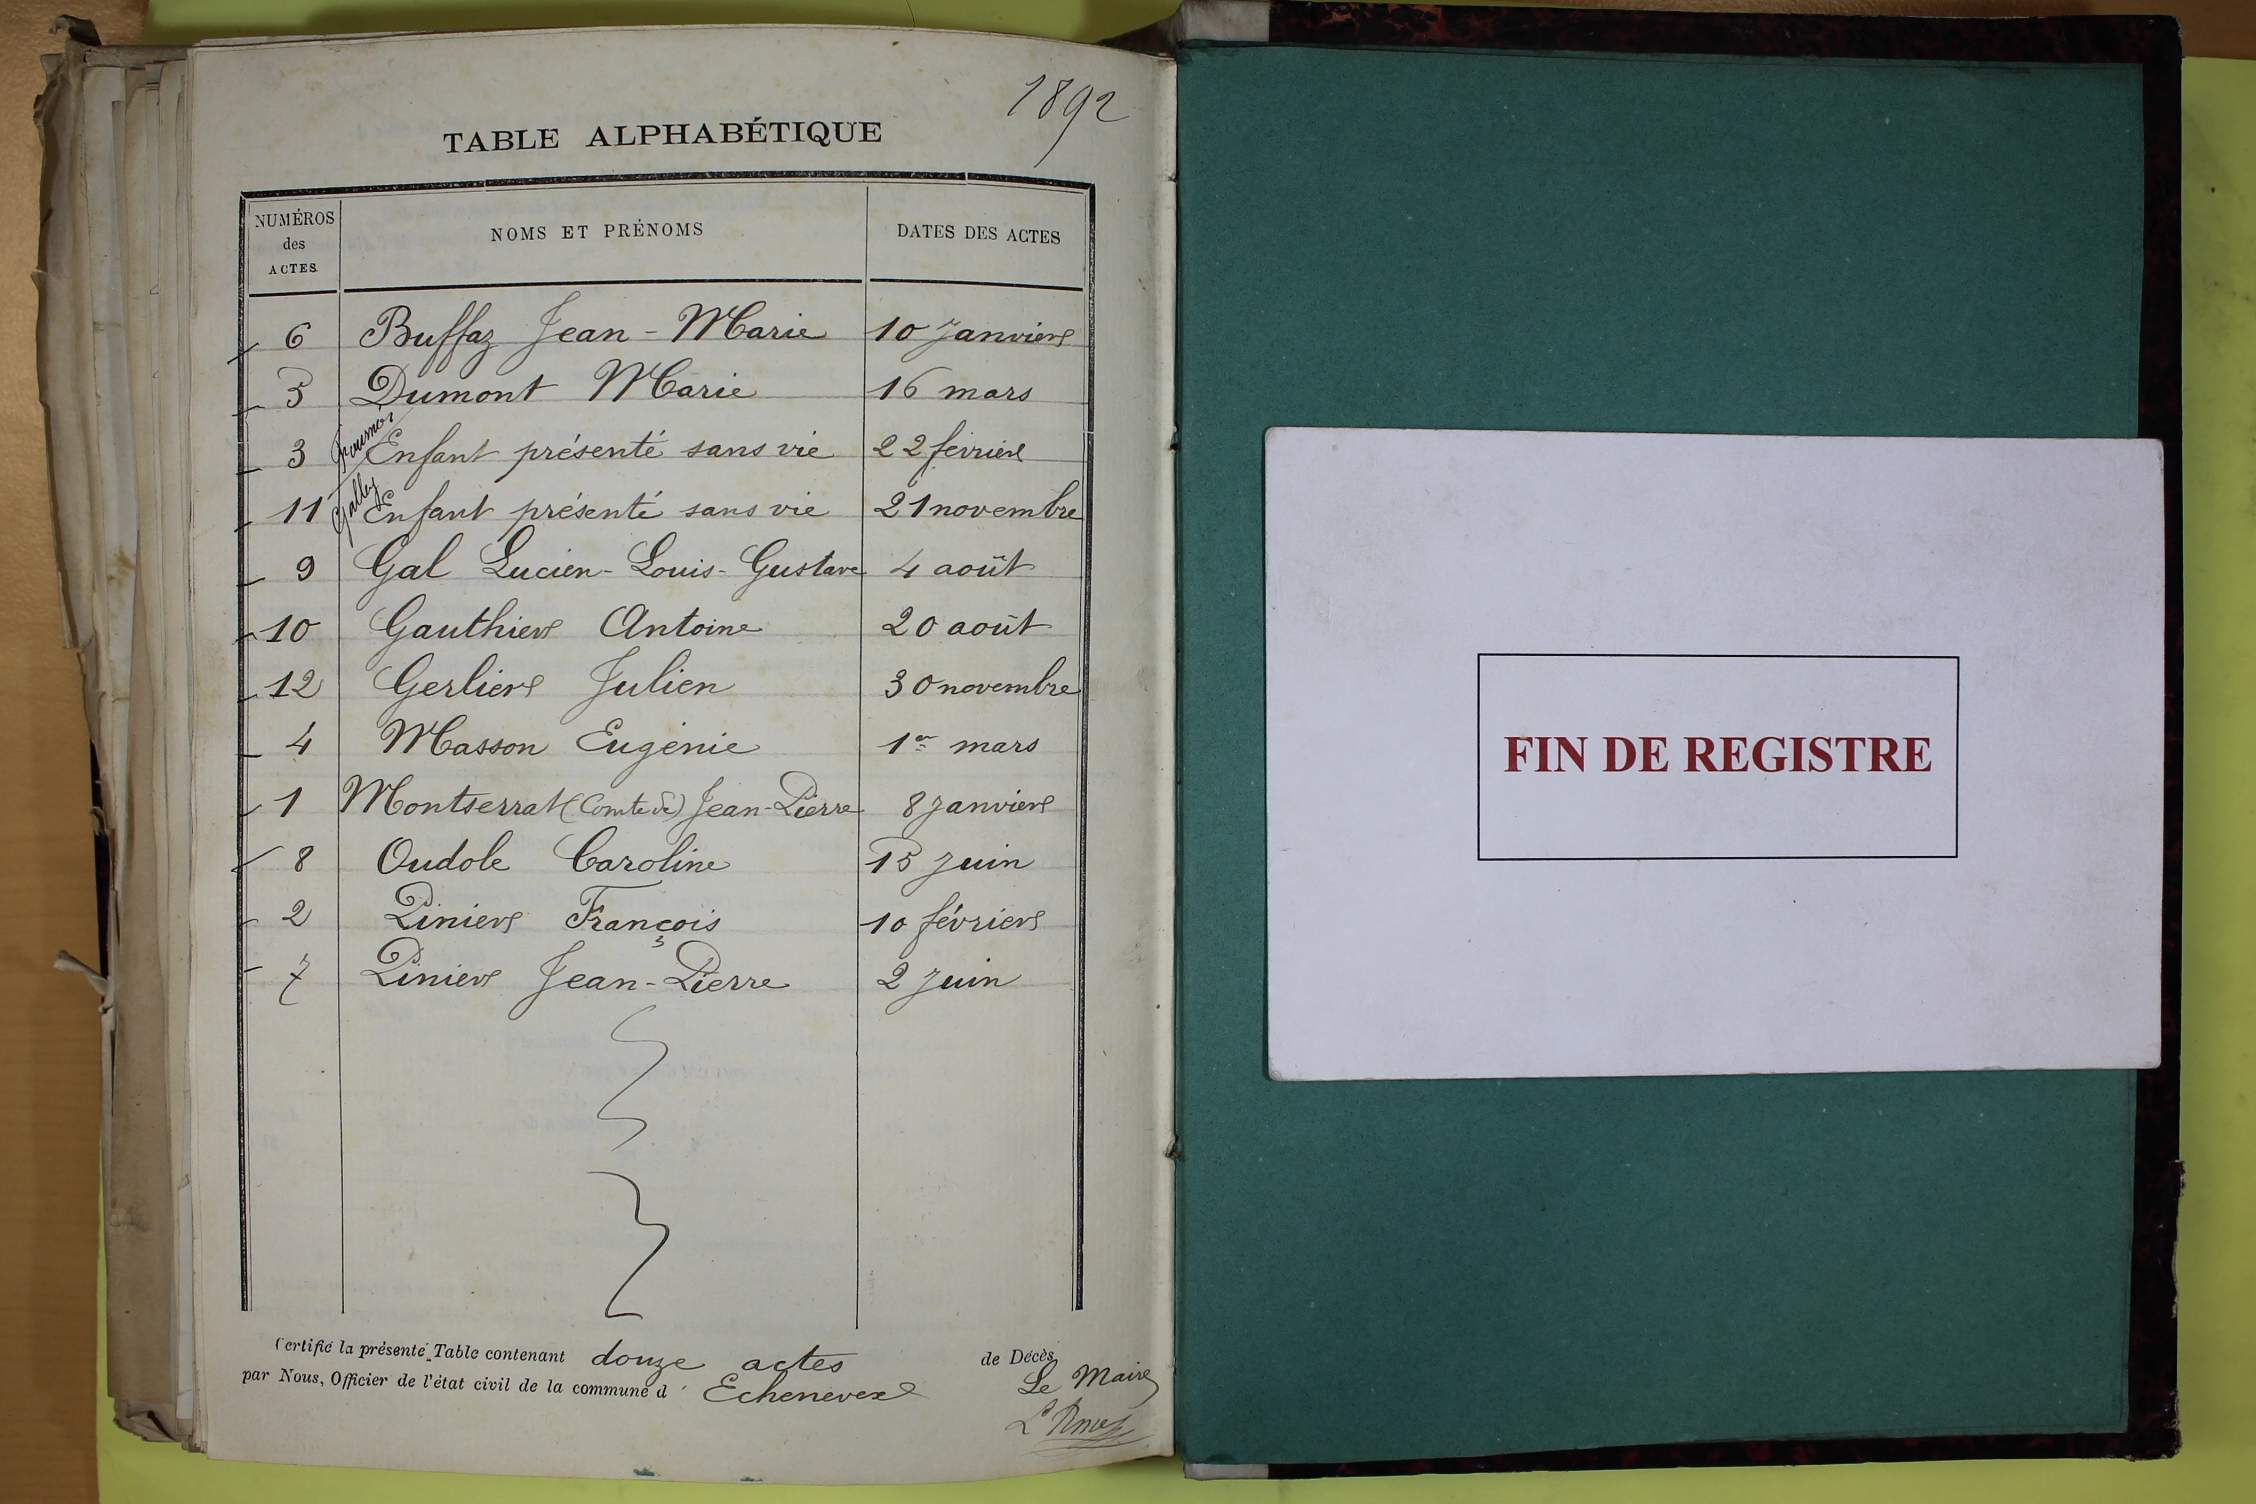 1892
TABLE ALPHABÉTIQUE
NUMÉROS des ACTES NOMS ET PRÉNOMS DATES DES ACTES
6 Buffaz Jean-Marie 10 Janvier
5 Dumont Marie 16 mars
3 Fournier Enfant présenté sans vie 22 février
11 Galley Enfant présenté sans vie 21 novembre
9 Gal Lucien-Louis-Gustave 4 août
10 Gauthier Antoine 20 août
12 Gerlier Julien 30 novembre
4 Masson Eugénie 1er mars
1 Montserrat (Comte de) Jean-Pierre 8 Janvier
8 Oudole Caroline 15 Juin
2 Pinier François 10 février
7 Pinier Jean-Pierre 2 Juin
Certifié la présente Table contenant douze actes de Décès
par Nous, Officier de l'état civil de la commune d' Echenevex
Le Maire
FIN DE REGISTRE